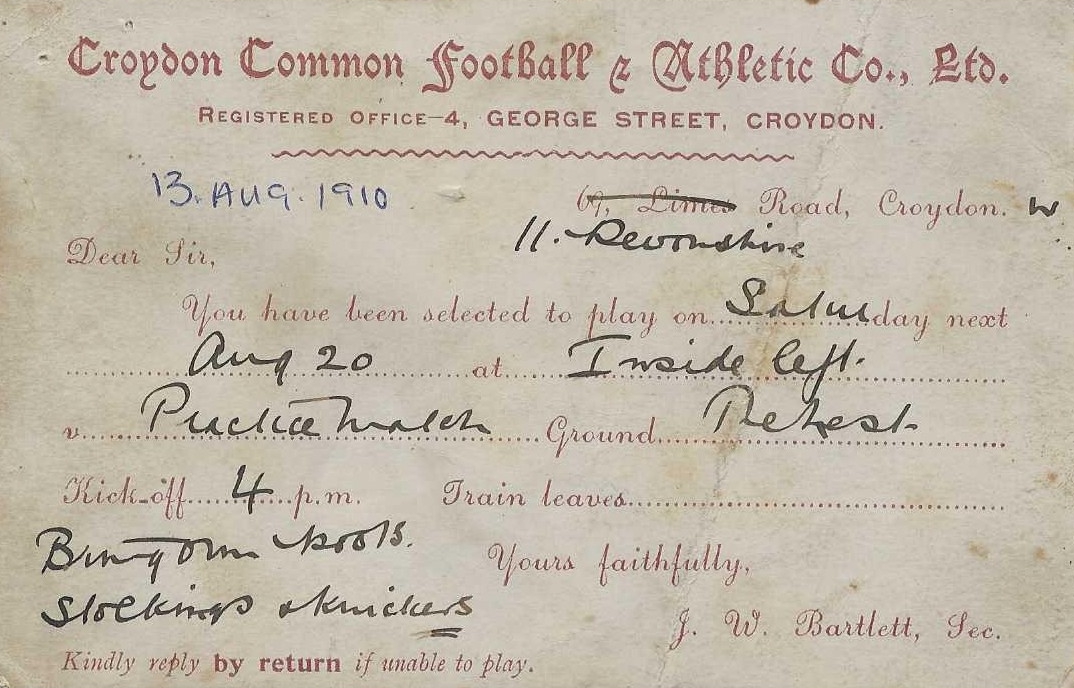 Croydon Common Football & Athletic Co., Ltd.
REGISTERED OFFICE—4, GEORGE STREET, CROYDON.
13. AUG. 1910
69, Limes Road, Croydon. W
11. Devonshire
Dear Sir,
You have been selected to play on Saturday next
Aug 20 at Inside left.
v. Practice match Ground The Nest
Kick-off 4 p.m. Train leaves
Bring own boots.
Yours faithfully,
Stockings & Knickers
J. W. Bartlett, Sec.
Kindly reply by return if unable to play.